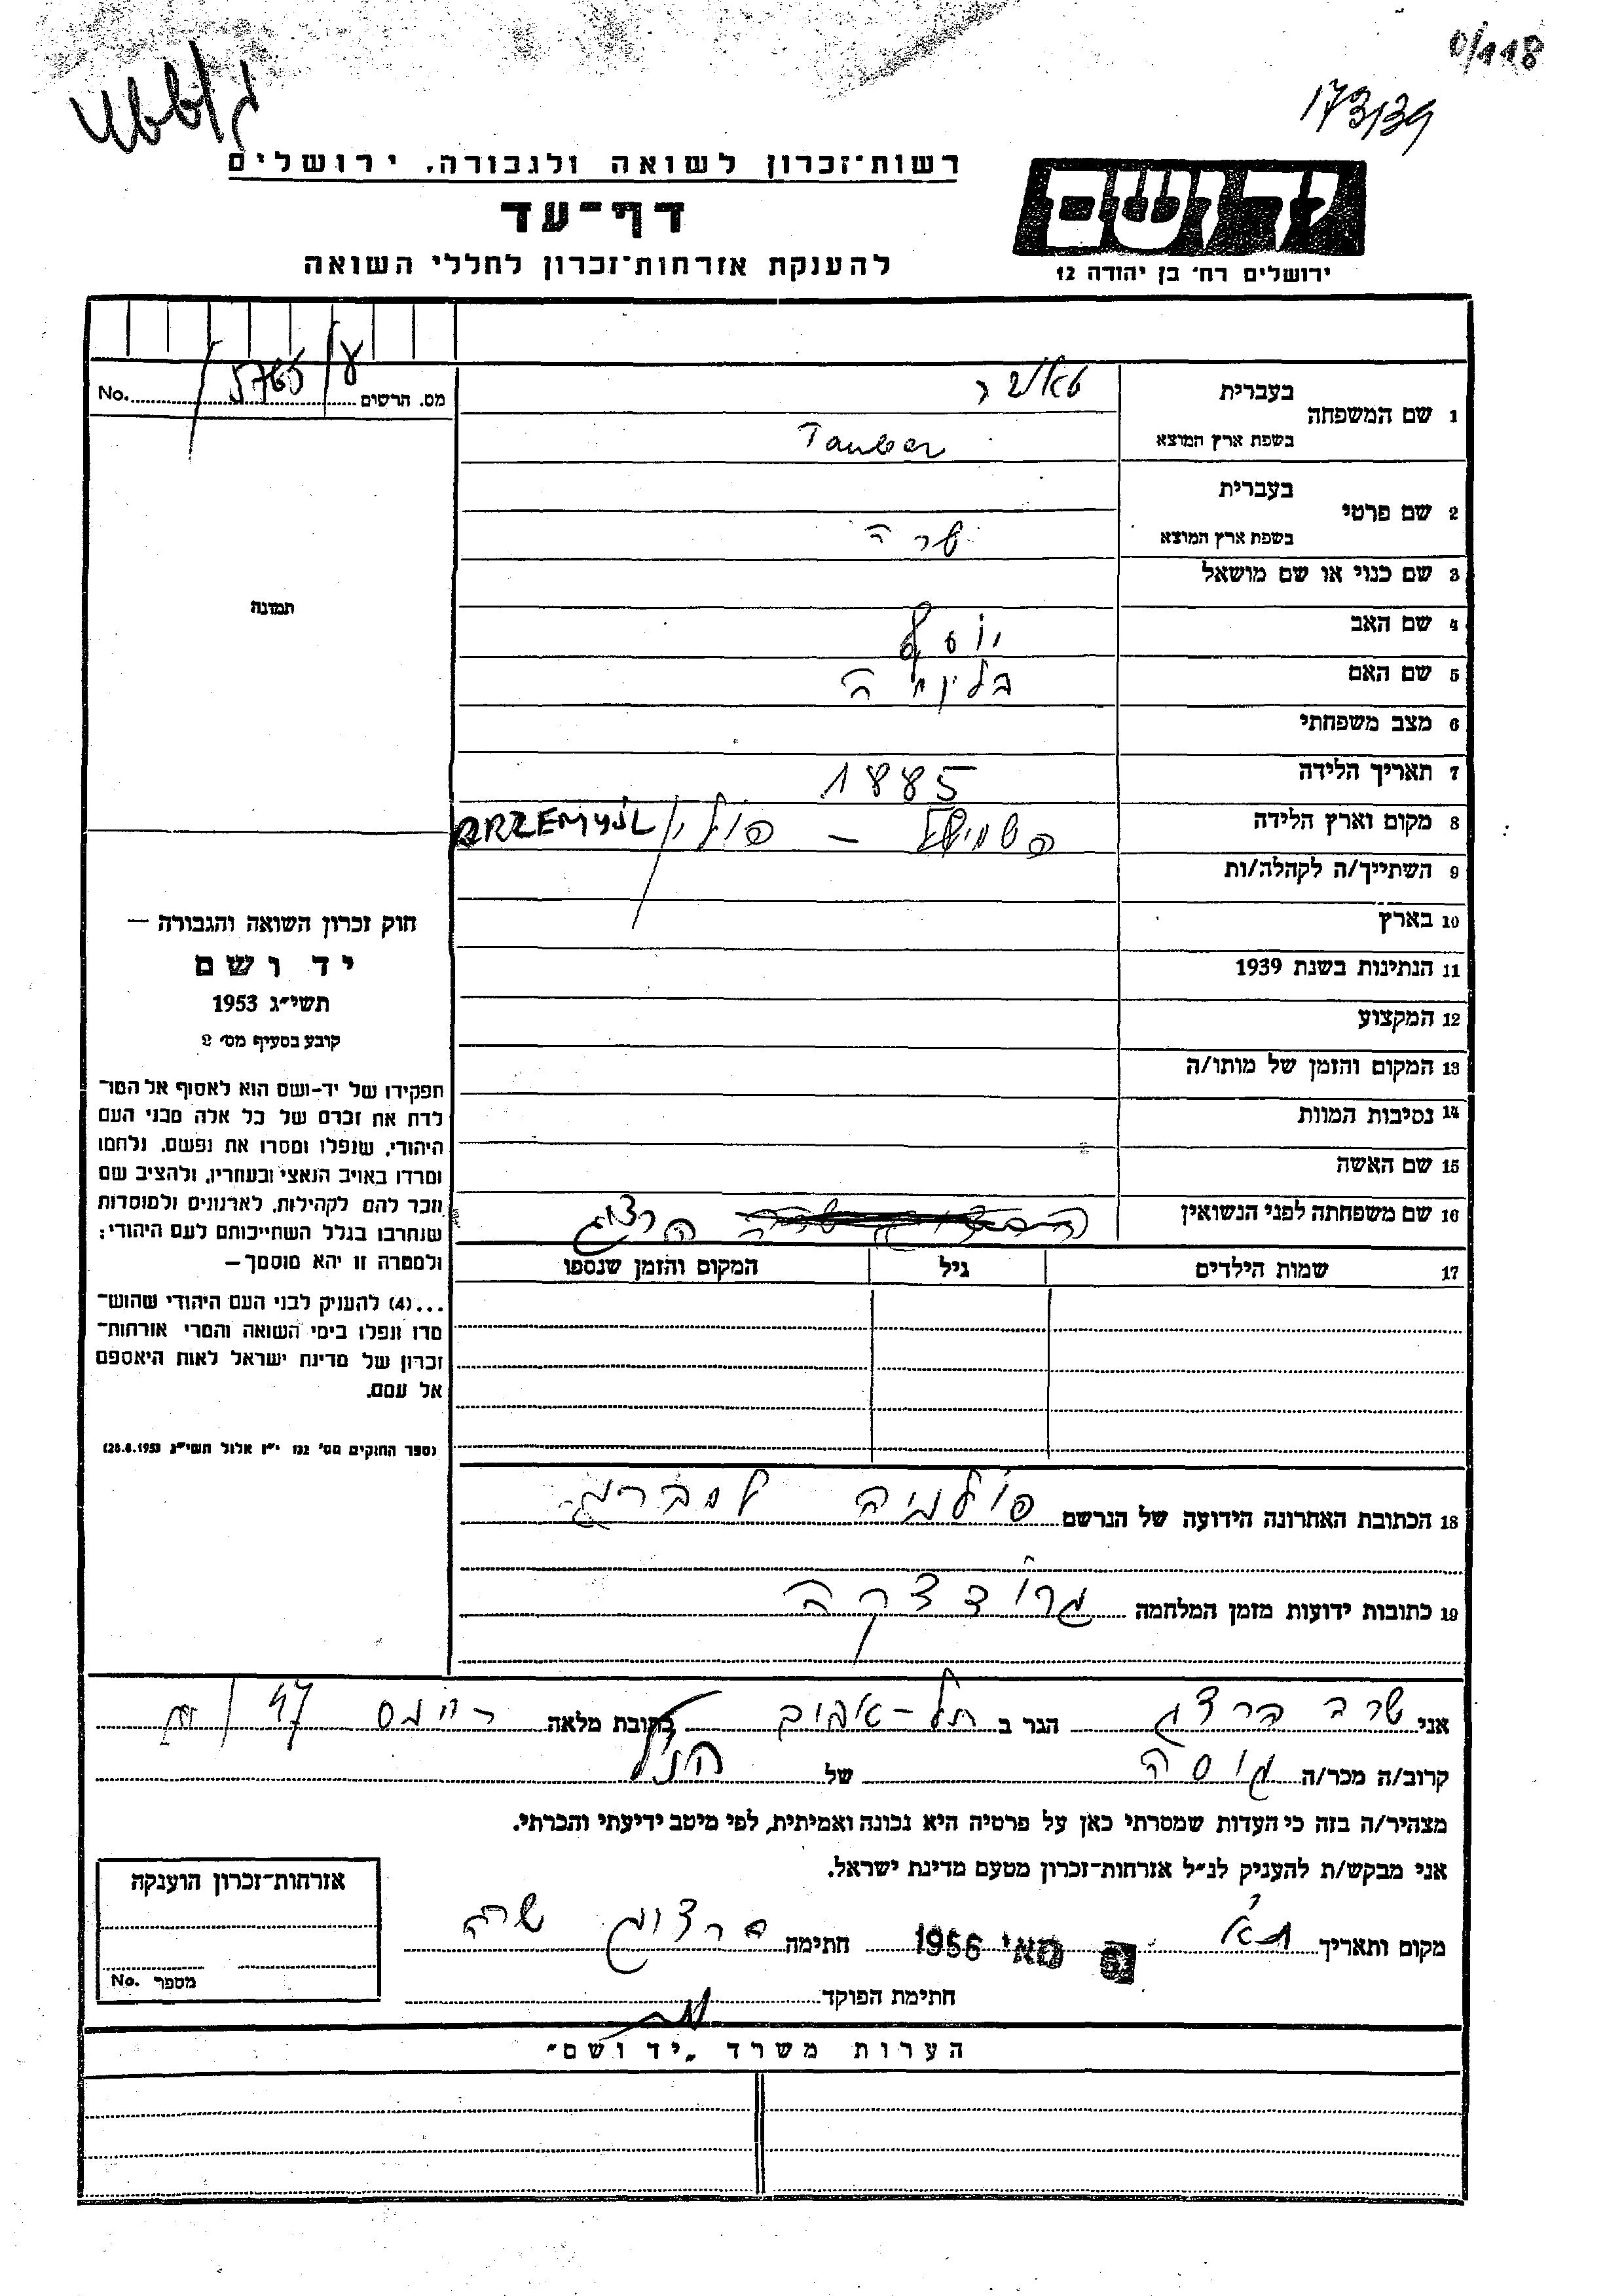 0/118
173/39
רשות־זכרון לשואה ולגבורה, ירושלים
דף־עד
להענקת אזרחות־זכרון לחללי השואה
יד ושם
ירושלים רח׳ בן יהודה 12
מס. הרשום No.
1 שם המשפחה
בעברית טאובר
בשפת ארץ המוצא Tauber
2 שם פרטי
בעברית
בשפת ארץ המוצא שרה
3 שם כנוי או שם מושאל
4 שם האב יוסף
5 שם האם
6 מצב משפחתי
7 תאריך הלידה 1885
8 מקום וארץ הלידה פשמישל – פולין PRZEMYSL
9 השתייך/ה לקהלה/ות
10 בארץ
11 הנתינות בשנת 1939
12 המקצוע
13 המקום והזמן של מותו/ה
14 נסיבות המוות
15 שם האשה
16 שם משפחתה לפני הנשואין הרצוג
17 שמות הילדים גיל המקום והזמן שנספו
18 הכתובת האחרונה הידועה של הנרשם פולניה למברג
19 כתובות ידועות מזמן המלחמה גרודצקה
תמונה
חוק זכרון השואה והגבורה –
יד ושם
תשי״ג 1953
קובע בסעיף מס׳ 2
תפקידו של יד–ושם הוא לאסוף אל המו־
לדת את זכרם של כל אלה מבני העם
היהודי, שנפלו ומסרו את נפשם, נלחמו
ומרדו באויב הנאצי ובעוזריו, ולהציב שם
וזכר להם לקהילות, לארגונים ולמוסדות
שנחרבו בגלל השתייכותם לעם היהודי;
ולמטרה זו יהא מוסמך –
...(4) להעניק לבני העם היהודי שהוש־
מדו ונפלו בימי השואה והמרי אזרחות־
זכרון של מדינת ישראל לאות היאספם
אל עמם.
(ספר החוקים מס׳ 132 י״ז אלול תשי״ג 28.8.1953)
אני שרה הרצוג הגר ב תל–אביב כתובת מלאה ריינס 47
קרוב/ה מכר/ה גיסה של הנ״ל
מצהיר/ה בזה כי העדות שמסרתי כאן על פרטיה היא נכונה ואמיתית, לפי מיטב ידיעתי והכרתי.
אני מבקש/ת להעניק לנ״ל אזרחות־זכרון מטעם מדינת ישראל.
מקום ותאריך ת״א מאי 1956 חתימה הרצוג שרה
חתימת הפוקד
אזרחות־זכרון הוענקה
מספר No.
הערות משרד „יד ושם״